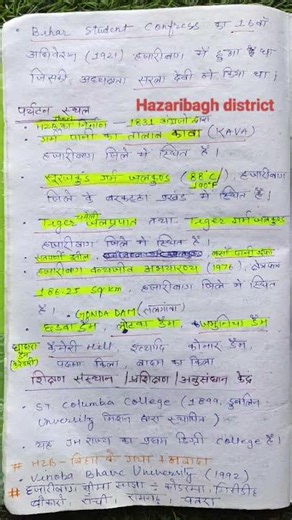 • Bihar Student Confress का 16वां
अधिवेशन (1921) हजारीबाग में हुआ था
जिसकी अध्यक्षता सरला देवी ने किया था।
Hazaribagh district
पर्यटन स्थल
1831
• गर्म पानी का तालाब कावा (KAVA)
हजारीबाग जिले में स्थित है।
• सूरजकुण्ड गर्म जलकुण्ड (88°C) हजारीबाग
190°F
जिले के बरकट्ठा प्रखंड में स्थित है।
• Tiger जलप्रपात तथा Tiger गर्म जलकुण्ड
हजारीबाग जिले में स्थित है।
• हजारीबाग वन्यजीव अभयारण्य (1976), क्षेत्रफल
186.25 Sq km, हजारीबाग जिले में स्थित
है। GONDA DAM
छड़वा डैम, लोटवा डैम, जमुनिया डैम
कैनेरी Hill, इत्यादि कोनार डैम
पदमा किला, बादम का किला
शिक्षण संस्थान / प्रशिक्षण / अनुसंधान केंद्र
• St Columba College (1899, डबलिन
University मिशन द्वारा स्थापित)
• यह JH राज्य का प्रथम डिग्री College है।
# HZB -
• Vinoba Bhave University (1992)
# हजारीबाग सीमा साझा - कोडरमा, गिरिडीह
बोकारो, रांची, रामगढ़, चतरा